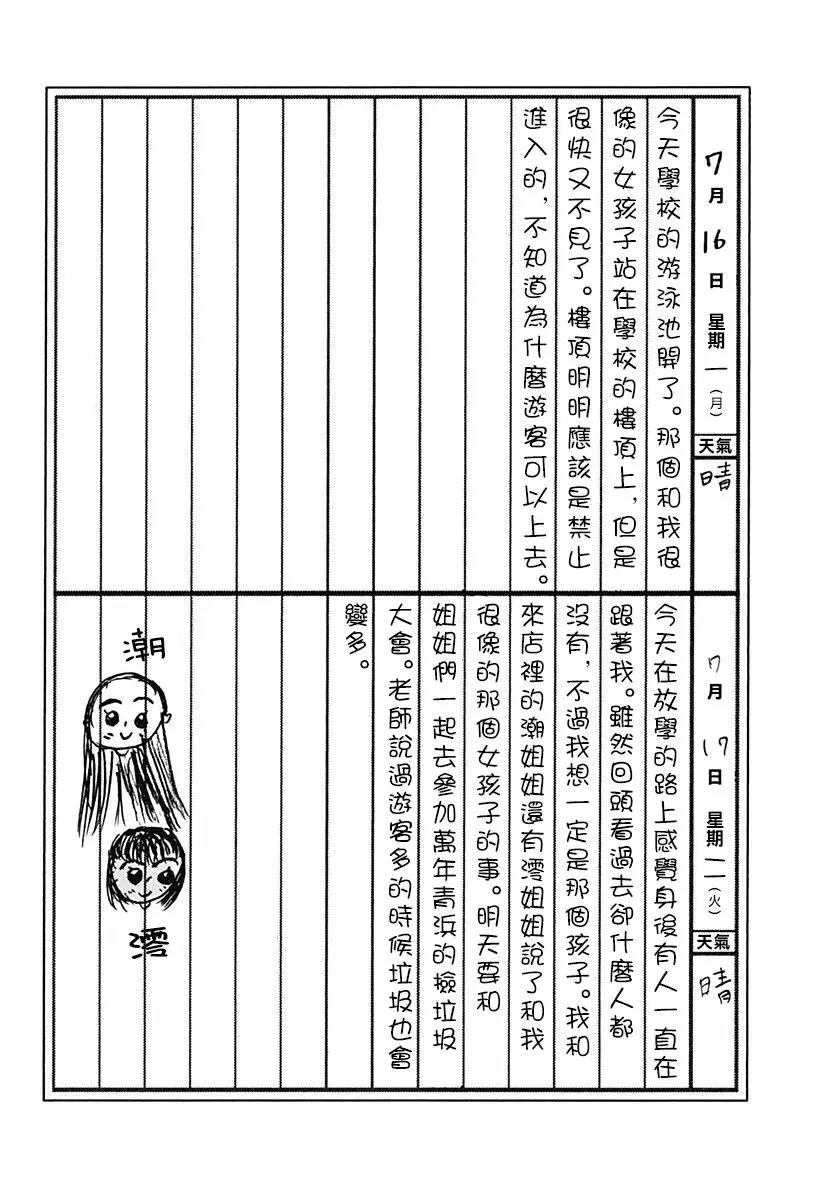 7月16日 星期一（月）
天氣
晴
今天學校的游泳池開了。那個和我很
像的女孩子站在學校的樓頂上，但是
很快又不見了。樓頂明明應該是禁止
進入的，不知道為什麼遊客可以上去。
7月17日 星期二（火）
天氣
晴
今天在放學的路上感覺身後有人一直在
跟著我。雖然回頭看過去卻什麼人都
沒有，不過我想一定是那個孩子。我和
來店裡的潮姐姐還有澪姐姐說了和我
很像的那個女孩子的事。明天要和
姐姐們一起去參加萬年青浜的撿垃圾
大會。老師說過遊客多的時候垃圾也會
變多。
潮
澪